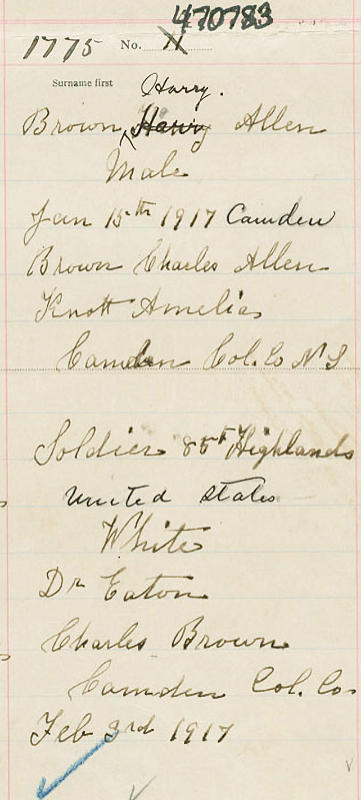 470783
1775 No. 11
Surname first
Harry.
Brown, Harry Allen
Male
Jan 15th 1917 Camden
Brown Charles Allen
Knott Amelia
Camden Col. Co N S
Soldier 85t Highlands
United States
White
Dr Eaton
Charles Brown
Camden Col. Co.
Feb 3rd 1917